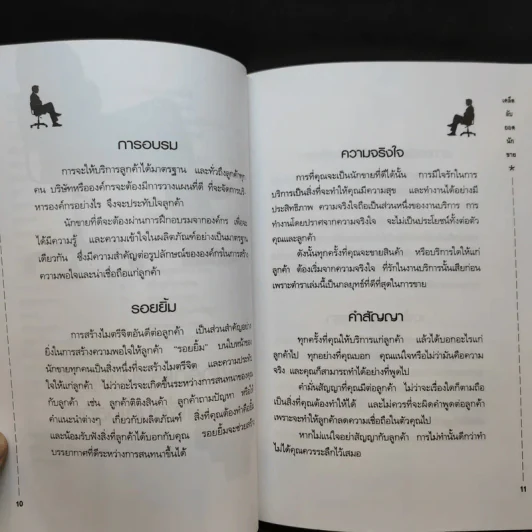 การอบรม
การจะให้บริการลูกค้าได้มาตรฐาน และทั่วถึงลูกค้าทุก
คน บริษัทหรือองค์กรจะต้องมีการวางแผนที่ดี ที่จะจัดการบริ
หารองค์กรอย่างไร จึงจะประทับใจลูกค้า
นักขายที่ดีจะต้องผ่านการฝึกอบรมจากองค์กร เพื่อจะ
ได้มีความรู้ และความเข้าใจในผลิตภัณฑ์อย่างเป็นมาตรฐาน
เดียวกัน ซึ่งมีความสำคัญต่อรูปลักษณ์ขององค์กรในการสร้าง
ความพอใจและน่าเชื่อถือแก่ลูกค้า
รอยยิ้ม
การสร้างไมตรีจิตอันดีต่อลูกค้า เป็นส่วนสำคัญอย่าง
ยิ่งในการสร้างความพอใจให้ลูกค้า "รอยยิ้ม" บนใบหน้าของ
นักขายทุกคนเป็นสิ่งหนึ่งที่จะสร้างไมตรีจิต และความประทับ
ใจให้แก่ลูกค้า ไม่ว่าอะไรจะเกิดขึ้นระหว่างการสนทนาของคุณ
กับลูกค้า เช่น ลูกค้าติติงสินค้า ลูกค้าถามปัญหา หรือให้
คำแนะนำต่างๆ เกี่ยวกับผลิตภัณฑ์ สิ่งที่คุณต้องทำคือยิ้ม
และน้อมรับฟังสิ่งที่ลูกค้าได้บอกกับคุณ รอยยิ้มจะช่วยสร้าง
บรรยากาศที่ดีระหว่างการสนทนาขึ้นได้
10
เคล็ด
ลับ
ยอด
นัก
ขาย
ความจริงใจ
การที่คุณจะเป็นนักขายที่ดีได้นั้น การมีใจรักในการ
บริการเป็นสิ่งที่จะทำให้คุณมีความสุข และทำงานได้อย่างมี
ประสิทธิภาพ ความจริงใจถือเป็นส่วนหนึ่งของงานบริการ การ
ทำงานโดยปราศจากความจริงใจ จะไม่เป็นประโยชน์ทั้งต่อตัว
คุณและลูกค้า
ดังนั้นทุกครั้งที่คุณจะขายสินค้า หรือบริการใดให้แก่
ลูกค้า ต้องเริ่มจากความจริงใจ ที่รักในงานบริการนั้นเสียก่อน
เพราะตำราเล่มนี้เป็นกลยุทธ์ที่ดีที่สุดในการขาย
คำสัญญา
ทุกครั้งที่คุณให้บริการแก่ลูกค้า แล้วได้บอกอะไรแก่
ลูกค้าไป ทุกอย่างที่คุณบอก คุณแน่ใจหรือไม่ว่ามันคือความ
จริง และคุณก็สามารถทำได้อย่างที่พูดไป
คำมั่นสัญญาที่คุณมีต่อลูกค้า ไม่ว่าจะเรื่องใดก็ตามถือ
เป็นสิ่งที่คุณต้องทำให้ได้ และไม่ควรที่จะผิดคำพูดต่อลูกค้า
เพราะจะทำให้ลูกค้าลดความเชื่อถือในตัวคุณไป
หากไม่แน่ใจอย่าสัญญากับลูกค้า การไม่ทำนั้นดีกว่าทำ
ไม่ได้คุณควรระลึกไว้เสมอ
11